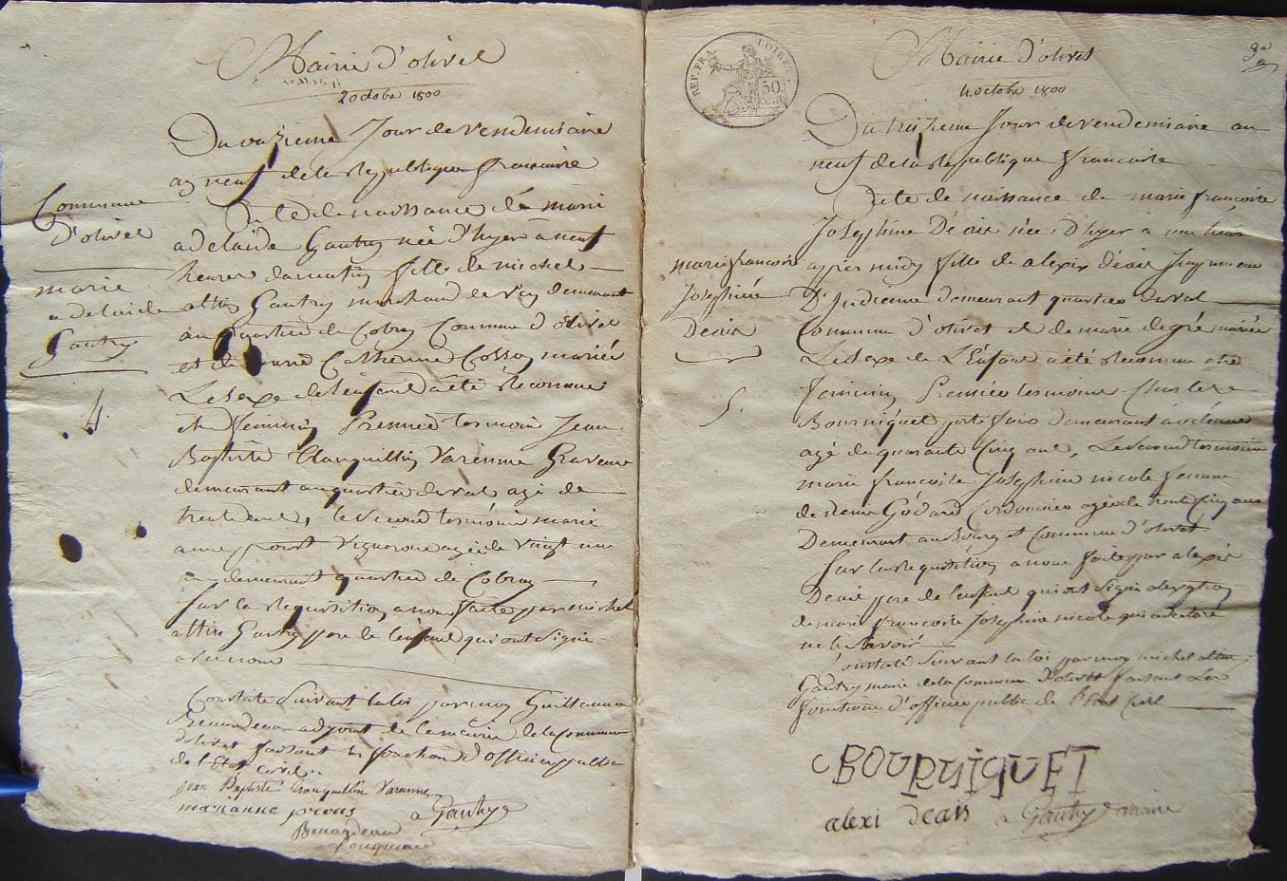 Mairie d'olivet
2 octobre 1800
Du onzieme Jour de vendemiaire
an neuf de la Republique francaise
Commune
d'olivet
marie
adelaide
Gautry
4.
acte de naissance de marie
adelaide Gautry née d'hyer à neuf
heures du matin fille de michel
altin Gautry marchand de vin demeurant
au quartier de Cobray Commune d'olivet
et de Catherine Cosson mariés
Le sexe de lenfant a été reconnu
être féminin Premier temoin Jean
Baptiste tranquillin Varenne Graveur
demeurant au quartier du val agé de
trente ans, le second temoin marie
anne vigneronne agée de vingt un
an demeurant quartier de Cobray
Sur la requisition a nous faite par michel
altin Gautry pere de lenfant qui ont signé
avec nous
Constaté Suivant la loi par moy Guillaume
adjoint de la mairie de la Commune
d'olivet faisant les fonctions d'officier public
de l'Etat Civil.
jean Baptiste tranquillin Varenne
marianne
a Gautry
REP. FRA. LOIRET
50
Mairie d'olivet
4 octobre 1800
Du treizieme Jour de vendemiaire an
neuf de la republique francaise
marie francoise
Josephine
Deais
5.
acte de naissance de marie francoise
Josephine Déais née d'hyer à une heure
apres midy fille de alexix déais
D'Indienne demeurant quartier du val
Commune d'olivet et de marie degré mariés
Le sexe de L'Enfant a été reconnu etre
feminin Premier temoin Charles
Bourniquet demeurant à orleans
agé de quarante Cinq ans, Le second temoin
marie francoise Josephine nicole femme
de Godard Cordonnier agée de trente Cinq ans
Demeurant au Bourg et Commune d'olivet
Sur la requisition a nous faite par alexis
Deais pere de lenfant qui ont signé a lexception
de marie francoise Josephine nicole qui a declaré
ne le Savoir
Constaté Suivant la loi par moy michel altin
Gautry maire de la Commune d'olivet faisant Les
fonctions d'officier public de l'Etat Civil
C BOURNIQUET
alexi deais a Gautry maire